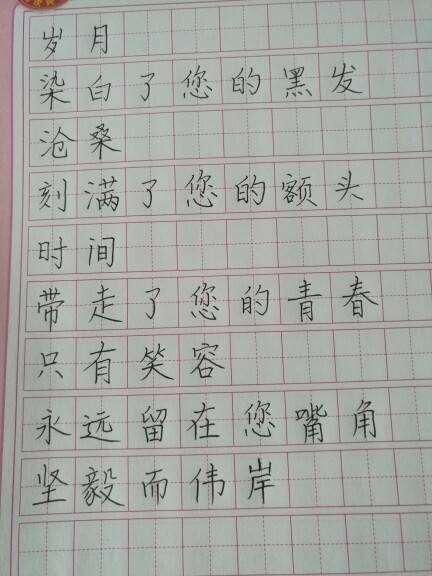 岁月
染白了您的黑发
沧桑
刻满了您的额头
时间
带走了您的青春
只有笑容
永远留在您嘴角
坚毅而伟岸